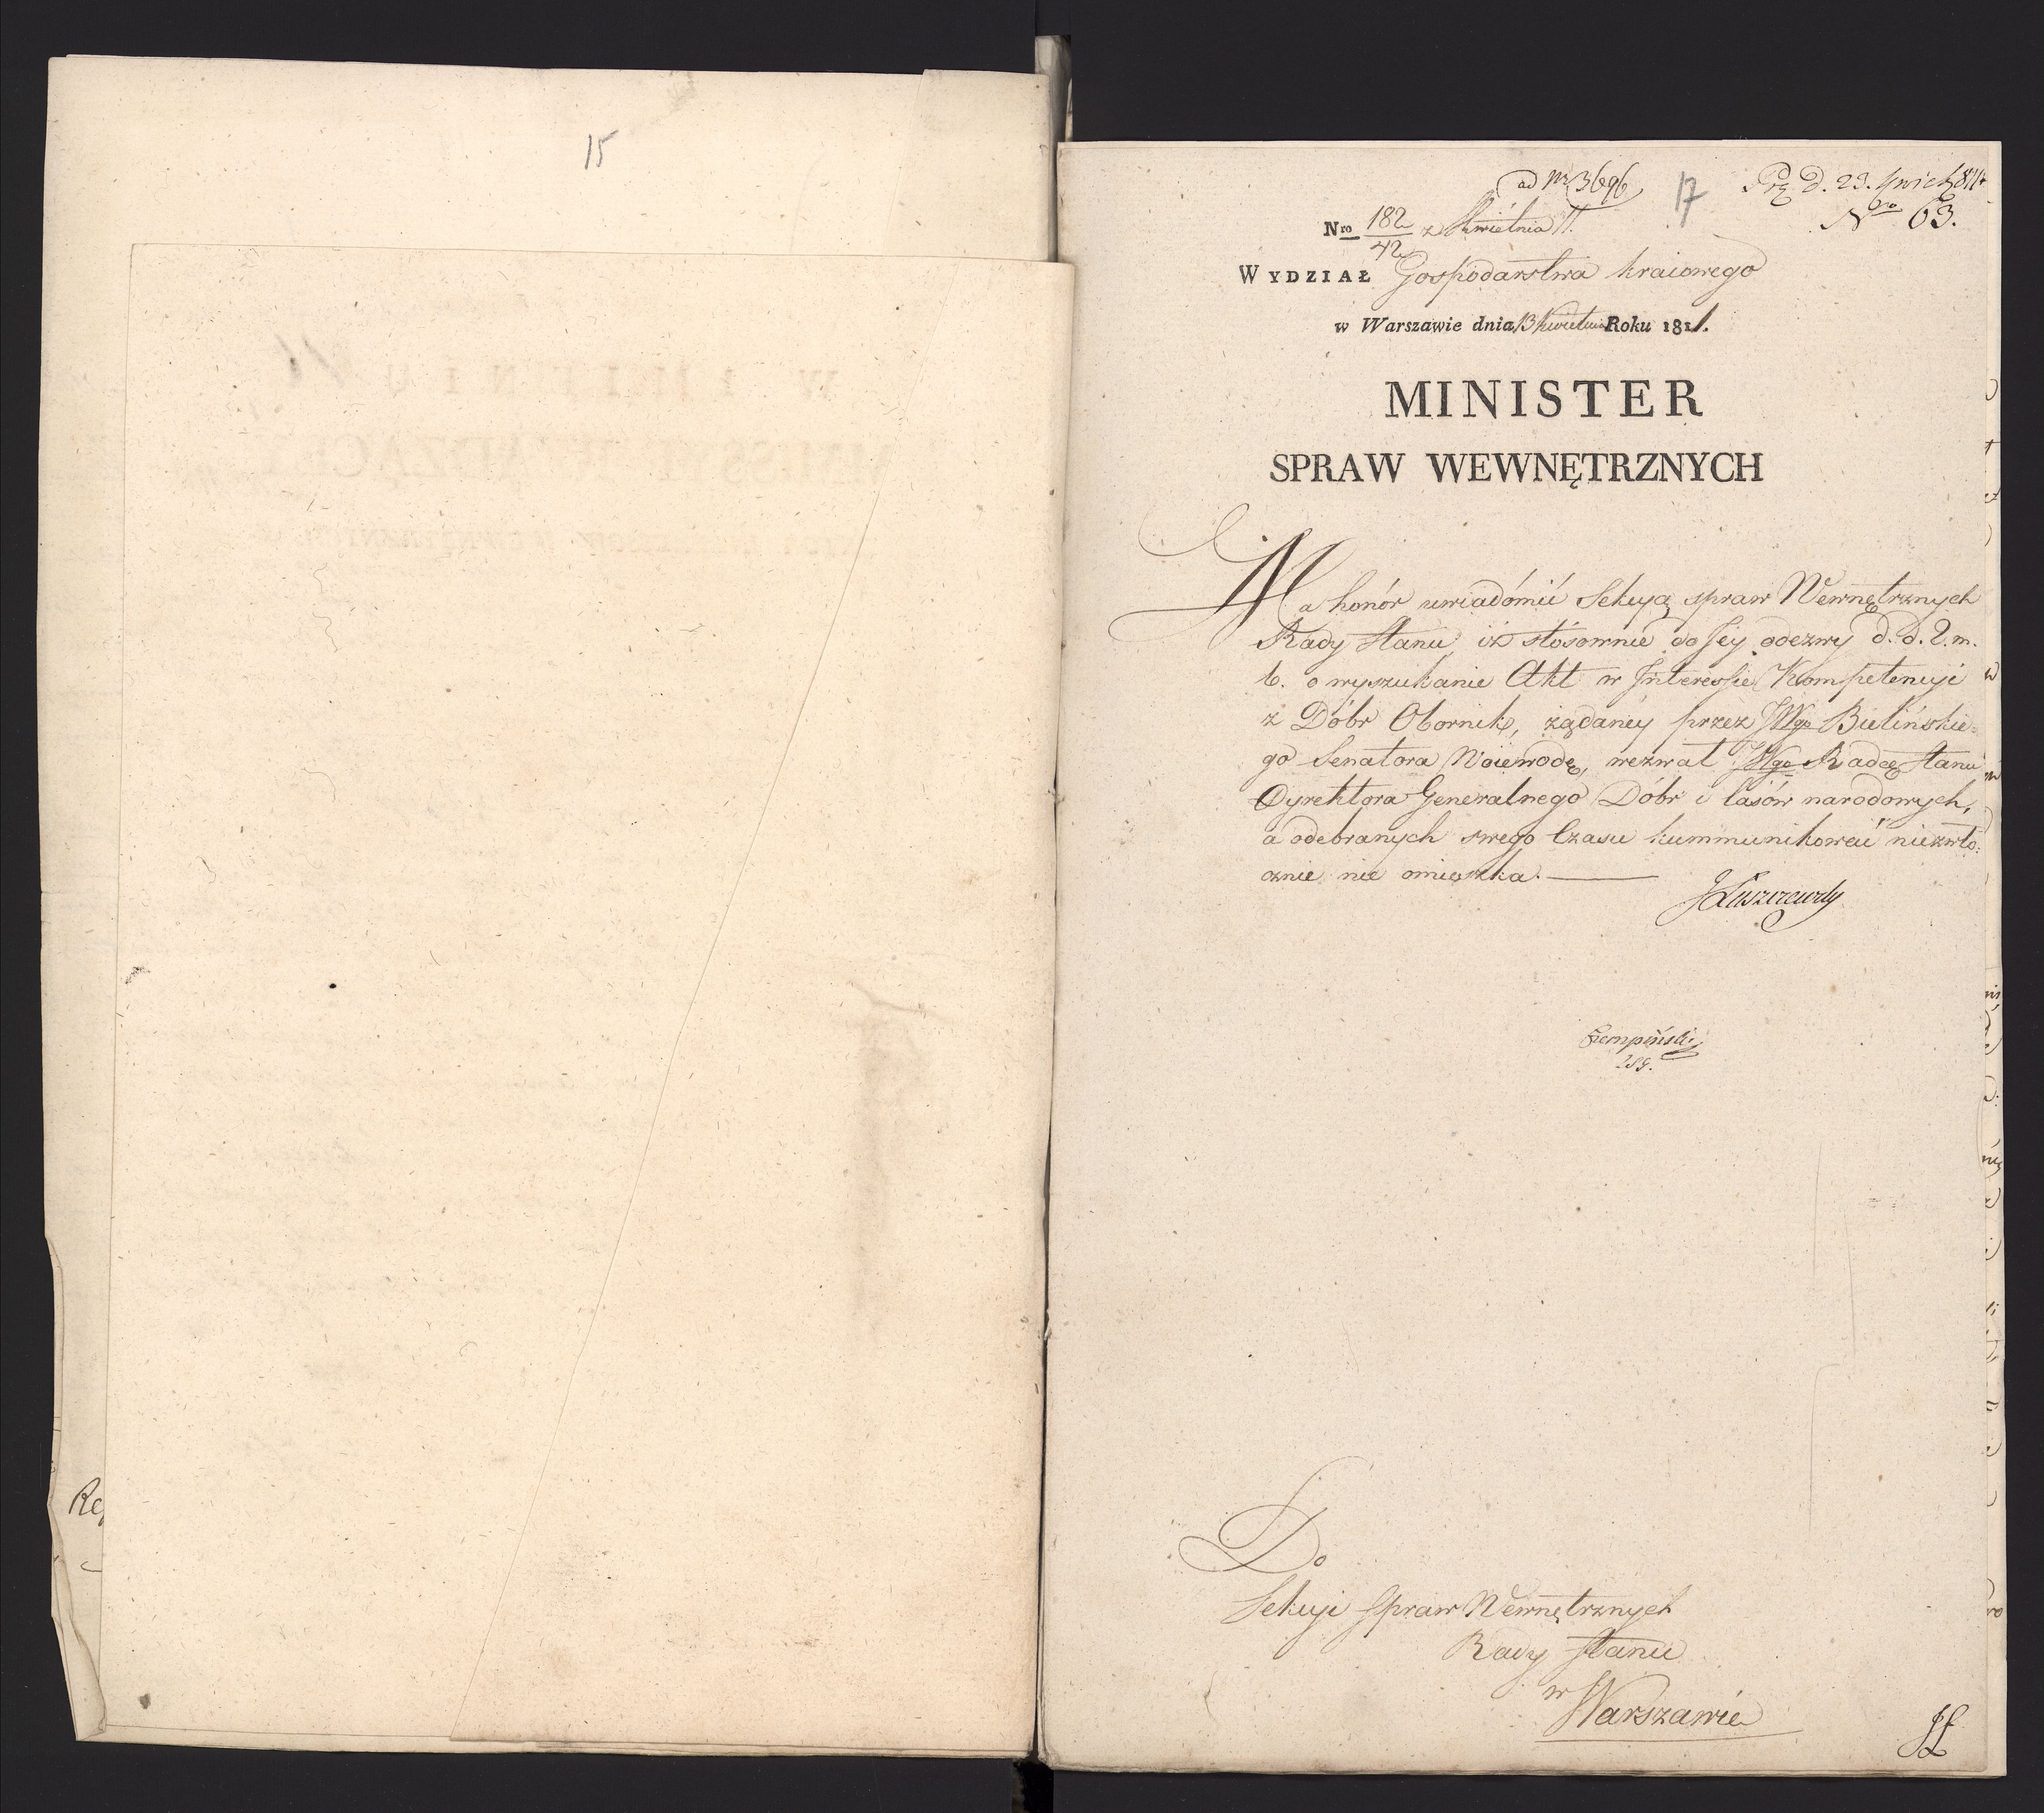 15
Re
ad Nr 3696
17
Prz d. 23. 4wiet. 811
Nro 63.
Nro 182/42 z Kwiétnia 11.
WYDZIAŁ Gospodarstwa kraiowego
w Warszawie dnia 13 Kwietnia Roku 1811.
MINISTER
SPRAW WEWNĘTRZNYCH
Ma honór uwiadómić Sekcyą spraw Wewnętrznych
Rady Stanu, iż stósownie do Jey odezwy d. d. 2. m.
b. o wyszukanie Akt w Interessie Kompetencyi
z Dóbr Obornik, żądaney przez JWgo Bielińskie-
go Senatora Woiewodę, wezwał JWgo Radcę Stanu
Dyrektora Generalnego Dóbr i lasów narodowych,
a odebranych swego Czasu kummunikować niezwło-
cznie nie omieszka.
JŁuszczewsky
Do
Sekcyi Spraw Wewnętrznych
Rady Stanu
w
Warszawie